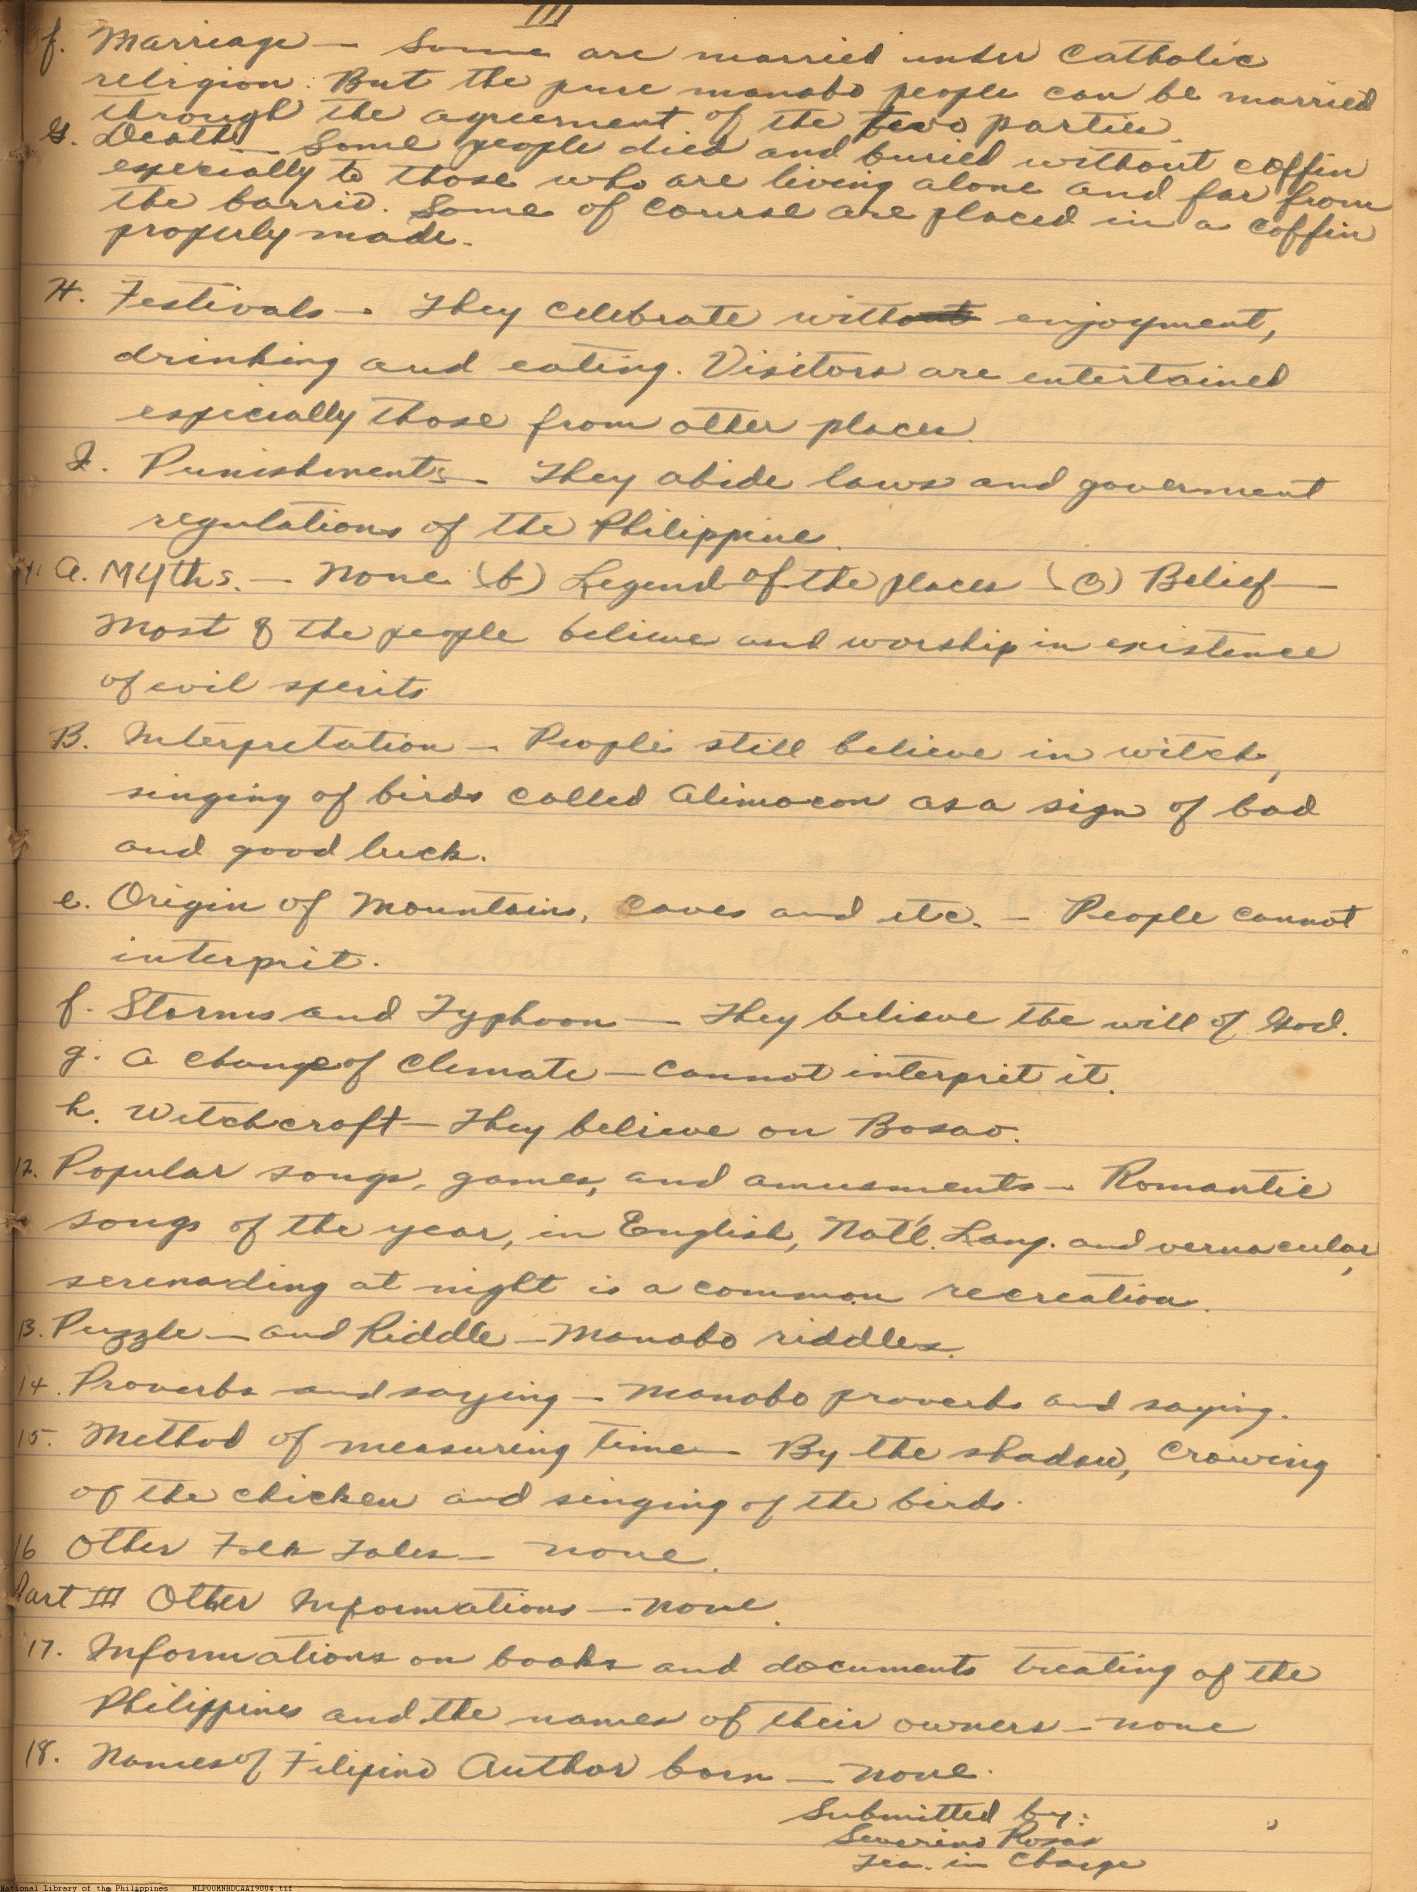 III
f. Marriage - Some are married under Catholic
religion. But the pure manobo people can be married
through the agreement of the two parties.
G. Death - Some people died and buried without coffin
especially to those who are living alone and far from
the barrio. Some of course are placed in a coffin
properly made.
H. Festivals - They celebrate without enjoyment,
drinking and eating. Visitors are entertained
especially those from other places.
I. Punishments - They abide laws and goverment
regulations of the Philippine.
11 a. Myths. - None (b) Legend of the places (c) Belief -
Most of the people believe and worship in existence
of evil sperits
B. Interpretation - People still believe in witch,
singing of birds called alimocon as a sign of bad
and good luck.
e. Origin of Mountains, Caves and etc. - People cannot
interprit.
f. Storms and Typhoon - They believe the will of God.
g. A change of Climate - Cannot interprit it.
h. Witchcraft - They believe on Bosao.
12. Popular songs, games, and amusments - Romantic
songs of the year, in English, Nat'l. Lang. and vernacular,
serenading at night is a common recreation.
13. Puzzle - and Riddle - Manobo riddles.
14. Proverbs and saying - Manobo proverbs and saying.
15. Method of measuring time - By the shadow, Crowing
of the chicken and singing of the birds.
16 Other Folk Tales - none.
Part III Other Informations - none.
17. Informations on books and documents treating of the
Philippines and the names of their owners - none
18. Names of Filipino Author born - none.
Submitted by:
Severino Rosas
Tea. in Charge
National Library of the Philippines NLP00MNBDCAA19004.tif